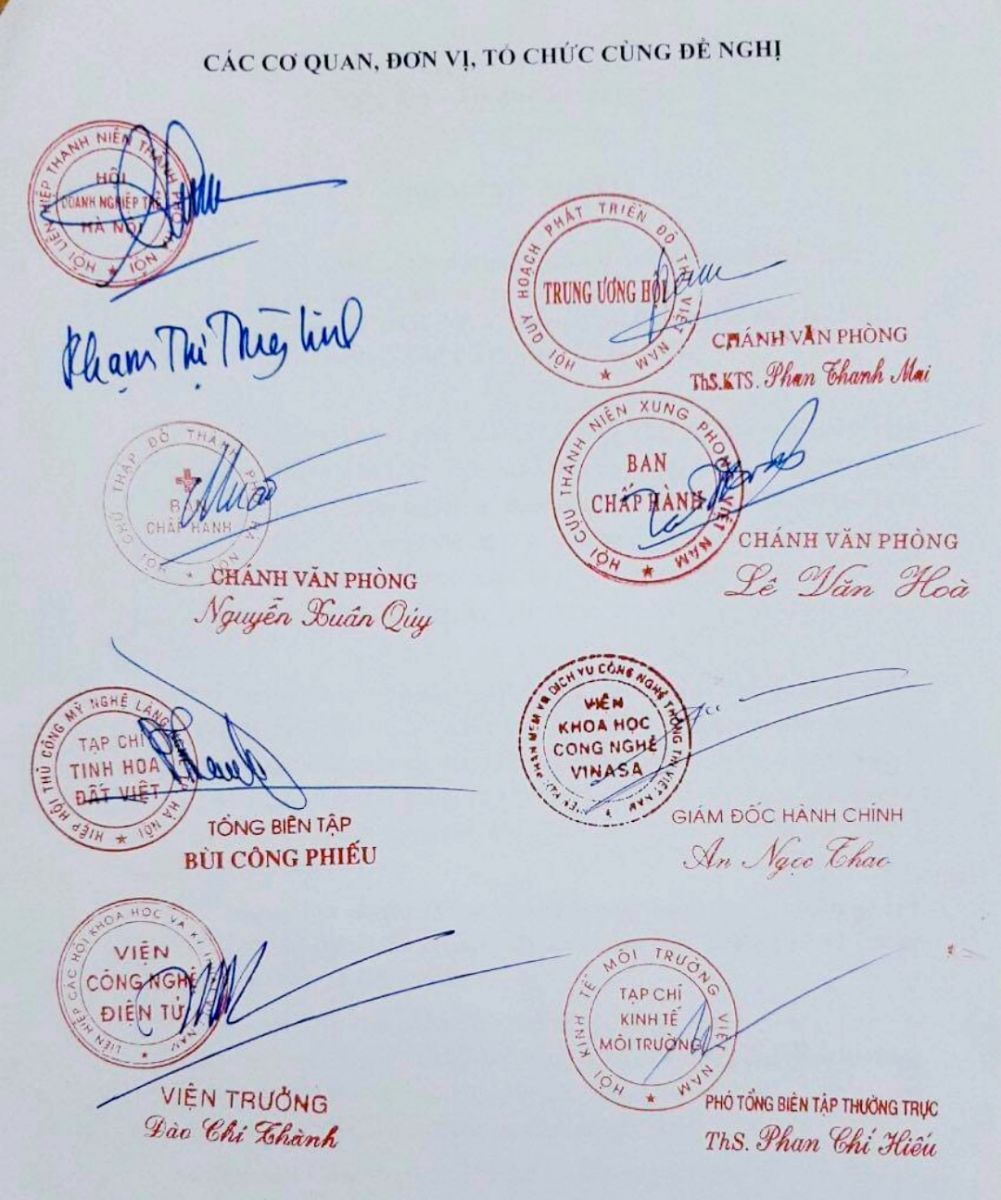 CÁC CƠ QUAN, ĐƠN VỊ, TỔ CHỨC CÙNG ĐỀ NGHỊ
HỘI LIÊN HIỆP THANH NIÊN THÀNH PHỐ HÀ NỘI
HỘI
DOANH NGHIỆP TRẺ
HÀ NỘI
Phạm Thị Thùy Linh
HỘI QUY HOẠCH PHÁT TRIỂN ĐÔ THỊ VIỆT NAM
TRUNG ƯƠNG HỘI
CHÁNH VĂN PHÒNG
ThS.KTS. Phan Thanh Mai
HỘI CHỮ THẬP ĐỎ THÀNH PHỐ HÀ NỘI
BAN
CHẤP HÀNH
CHÁNH VĂN PHÒNG
Nguyễn Xuân Qúy
HỘI CỰU THANH NIÊN XUNG PHONG VIỆT NAM
BAN
CHẤP HÀNH
CHÁNH VĂN PHÒNG
Lê Văn Hoà
HIỆP HỘI THỦ CÔNG MỸ NGHỆ LÀNG HÀ NỘI
TẠP CHÍ
TINH HOA
ĐẤT VIỆT
TỔNG BIÊN TẬP
BÙI CÔNG PHIẾU
PHẦN MỀM VÀ DỊCH VỤ CÔNG NGHỆ THÔNG TIN VIỆT NAM
VIỆN
KHOA HỌC
CÔNG NGHỆ
VINASA
GIÁM ĐỐC HÀNH CHÍNH
An Ngọc Thao
LIÊN HIỆP CÁC HỘI KHOA HỌC VÀ KỸ NAM
VIỆN
CÔNG NGHỆ
ĐIỆN TỬ
VIỆN TRƯỞNG
Đào Chí Thành
HỘI KINH TẾ MÔI TRƯỜNG VIỆT NAM
TẠP CHÍ
KINH TẾ
MÔI TRƯỜNG
PHÓ TỔNG BIÊN TẬP THƯỜNG TRỰC
ThS. Phan Chí Hiếu